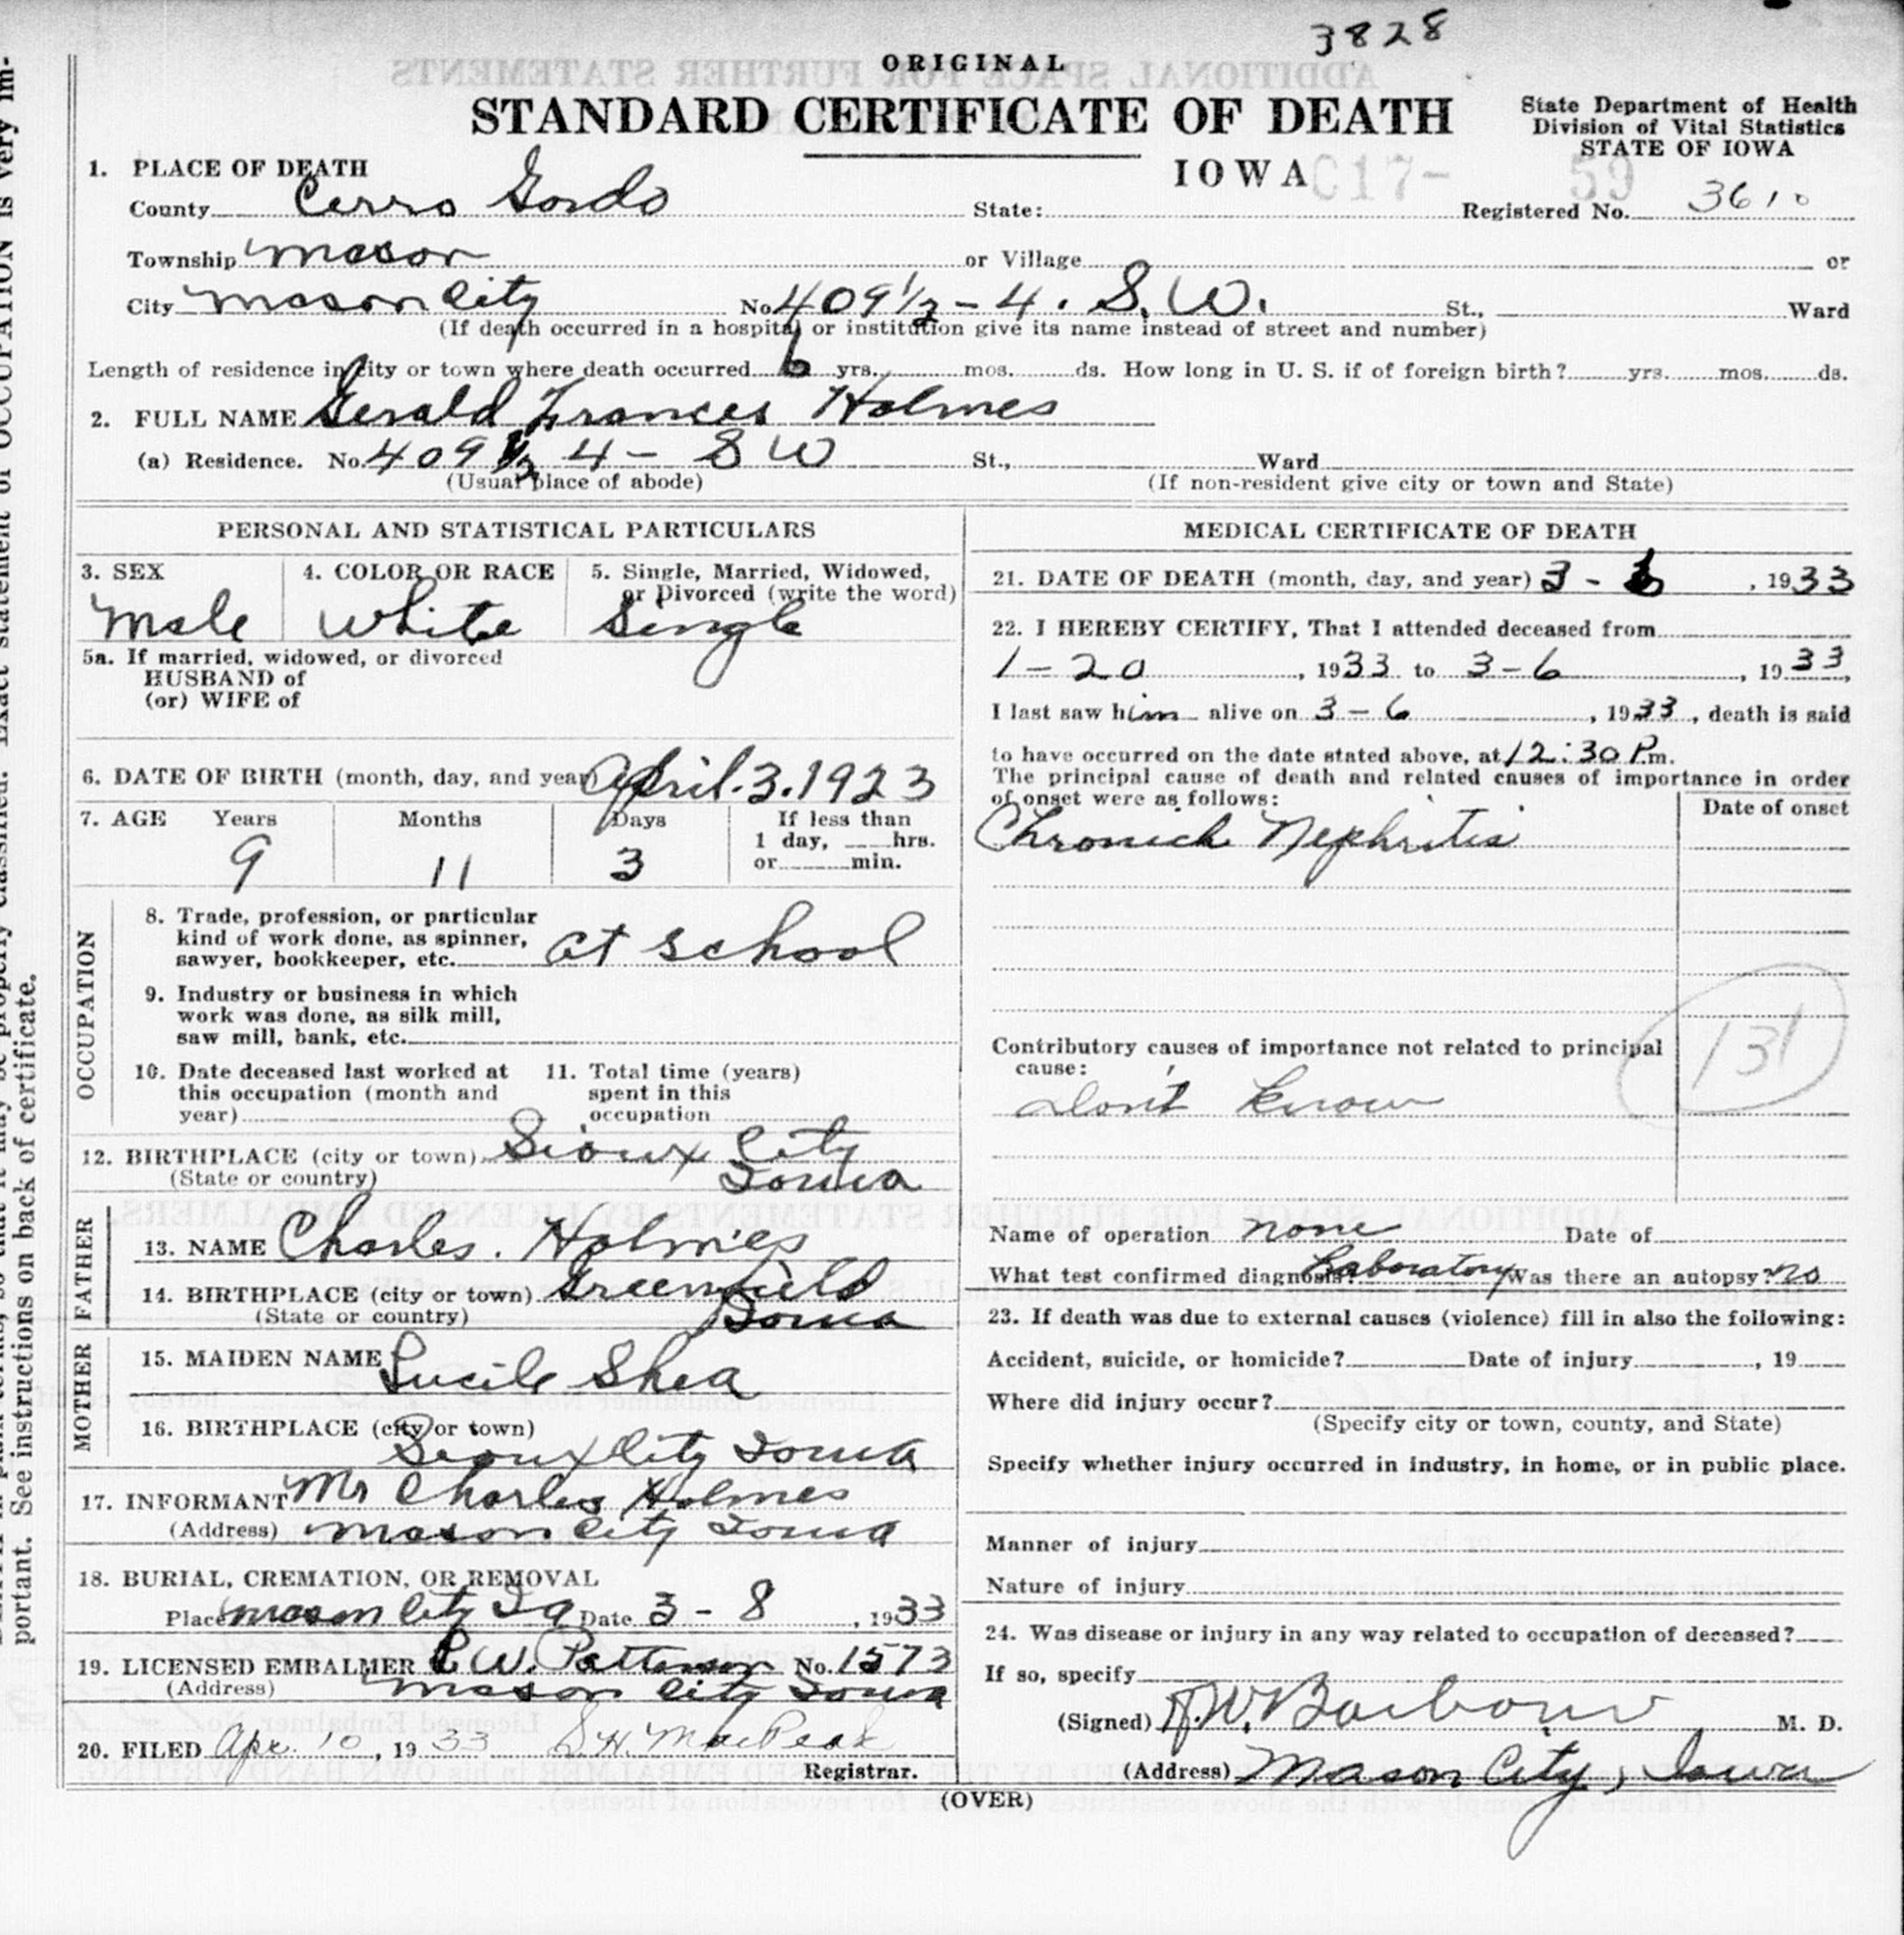 3828
ORIGINAL
STANDARD CERTIFICATE OF DEATH
State Department of Health
Division of Vital Statistics
STATE OF IOWA
IOWA
C17- 59
1. PLACE OF DEATH
County Cerro Gordo State: Registered No. 3610
Township Mason or Village or
City Mason City No. 409 1/2 - 4. S.W. St., Ward
(If death occurred in a hospital or institution give its name instead of street and number)
Length of residence in city or town where death occurred 6 yrs. mos. ds. How long in U. S. if of foreign birth? yrs. mos. ds.
2. FULL NAME Gerald Frances Holmes
(a) Residence. No. 409 1/2 4 - SW St., Ward
(Usual place of abode) (If non-resident give city or town and State)
PERSONAL AND STATISTICAL PARTICULARS
3. SEX 4. COLOR OR RACE 5. Single, Married, Widowed,
or Divorced (write the word)
Male White Single
5a. If married, widowed, or divorced
HUSBAND of
(or) WIFE of
6. DATE OF BIRTH (month, day, and year) April. 3. 1923
7. AGE Years Months Days If less than
1 day, hrs.
or min.
9 11 3
OCCUPATION
8. Trade, profession, or particular
kind of work done, as spinner,
sawyer, bookkeeper, etc. at school
9. Industry or business in which
work was done, as silk mill,
saw mill, bank, etc.
10. Date deceased last worked at
this occupation (month and
year)
11. Total time (years)
spent in this
occupation
12. BIRTHPLACE (city or town) Sioux City
(State or country) Iowa
FATHER
13. NAME Charles. Holmes
14. BIRTHPLACE (city or town) Greenfield
(State or country) Iowa
MOTHER
15. MAIDEN NAME Lucile Shea
16. BIRTHPLACE (city or town)
Sioux City Iowa
17. INFORMANT Mr Charles Holmes
(Address) Mason City Iowa
18. BURIAL, CREMATION, OR REMOVAL
Place Mason City Ia Date 3 - 8, 1933
19. LICENSED EMBALMER W. Patterson No. 1573
(Address) Mason City Iowa
20. FILED Apr. 10, 1933
Registrar.
MEDICAL CERTIFICATE OF DEATH
21. DATE OF DEATH (month, day, and year) 3 - 6, 1933
22. I HEREBY CERTIFY, That I attended deceased from
1 - 20, 1933 to 3 - 6, 1933,
I last saw him alive on 3 - 6, 1933, death is said
to have occurred on the date stated above, at 12:30 P.m.
The principal cause of death and related causes of importance in order
of onset were as follows: Date of onset
Chronich Nephritis
131
Contributory causes of importance not related to principal
cause:
Don't know
Name of operation none Date of
What test confirmed diagnosis? Laboratory Was there an autopsy? no
23. If death was due to external causes (violence) fill in also the following:
Accident, suicide, or homicide? Date of injury, 19
Where did injury occur?
(Specify city or town, county, and State)
Specify whether injury occurred in industry, in home, or in public place.
Manner of injury
Nature of injury
24. Was disease or injury in any way related to occupation of deceased?
If so, specify
(Signed) W. Barbour M. D.
(Address) Mason City, Iowa
(OVER)
portant. See instructions on back of certificate.